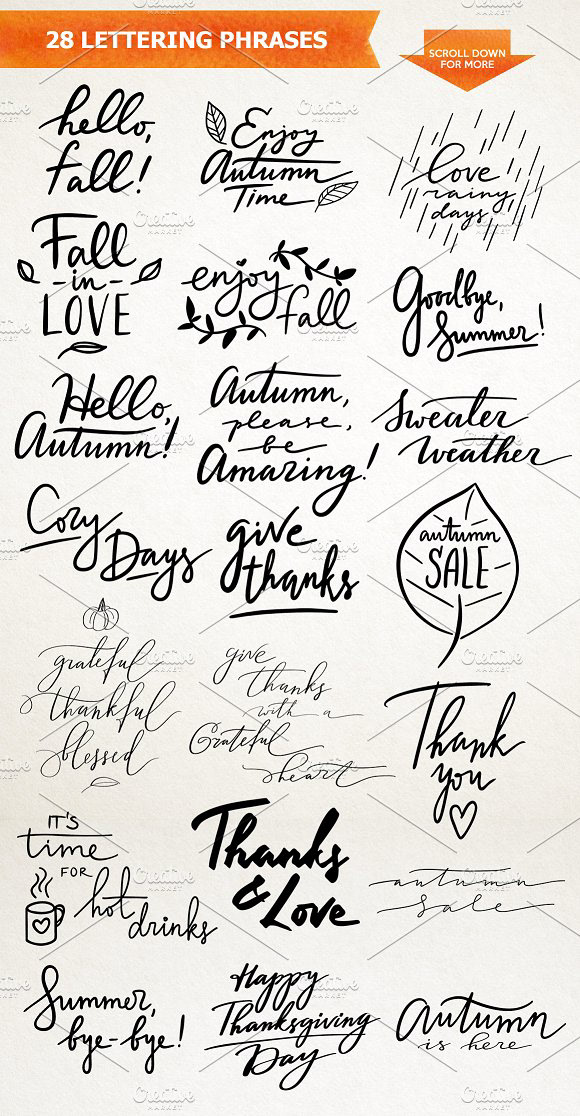 28 LETTERING PHRASES
SCROLL DOWN
FOR MORE
hello,
fall!
Enjoy
Autumn
Time
love
rainy
days
Fall
-in-
LOVE
enjoy
fall
Goodbye,
Summer!
Hello,
Autumn!
Autumn,
please,
be
Amazing!
Sweater
weather
Cozy
Days
give
thanks
autumn
SALE
grateful
thankful
blessed
give
thanks
with a
Grateful
heart
Thank
you
IT'S
time
FOR
hot
drinks
Thanks
& Love
autumn
sale
Summer,
bye-bye!
Happy
Thanksgiving
Day
Autumn
is here
Creative
MARKET